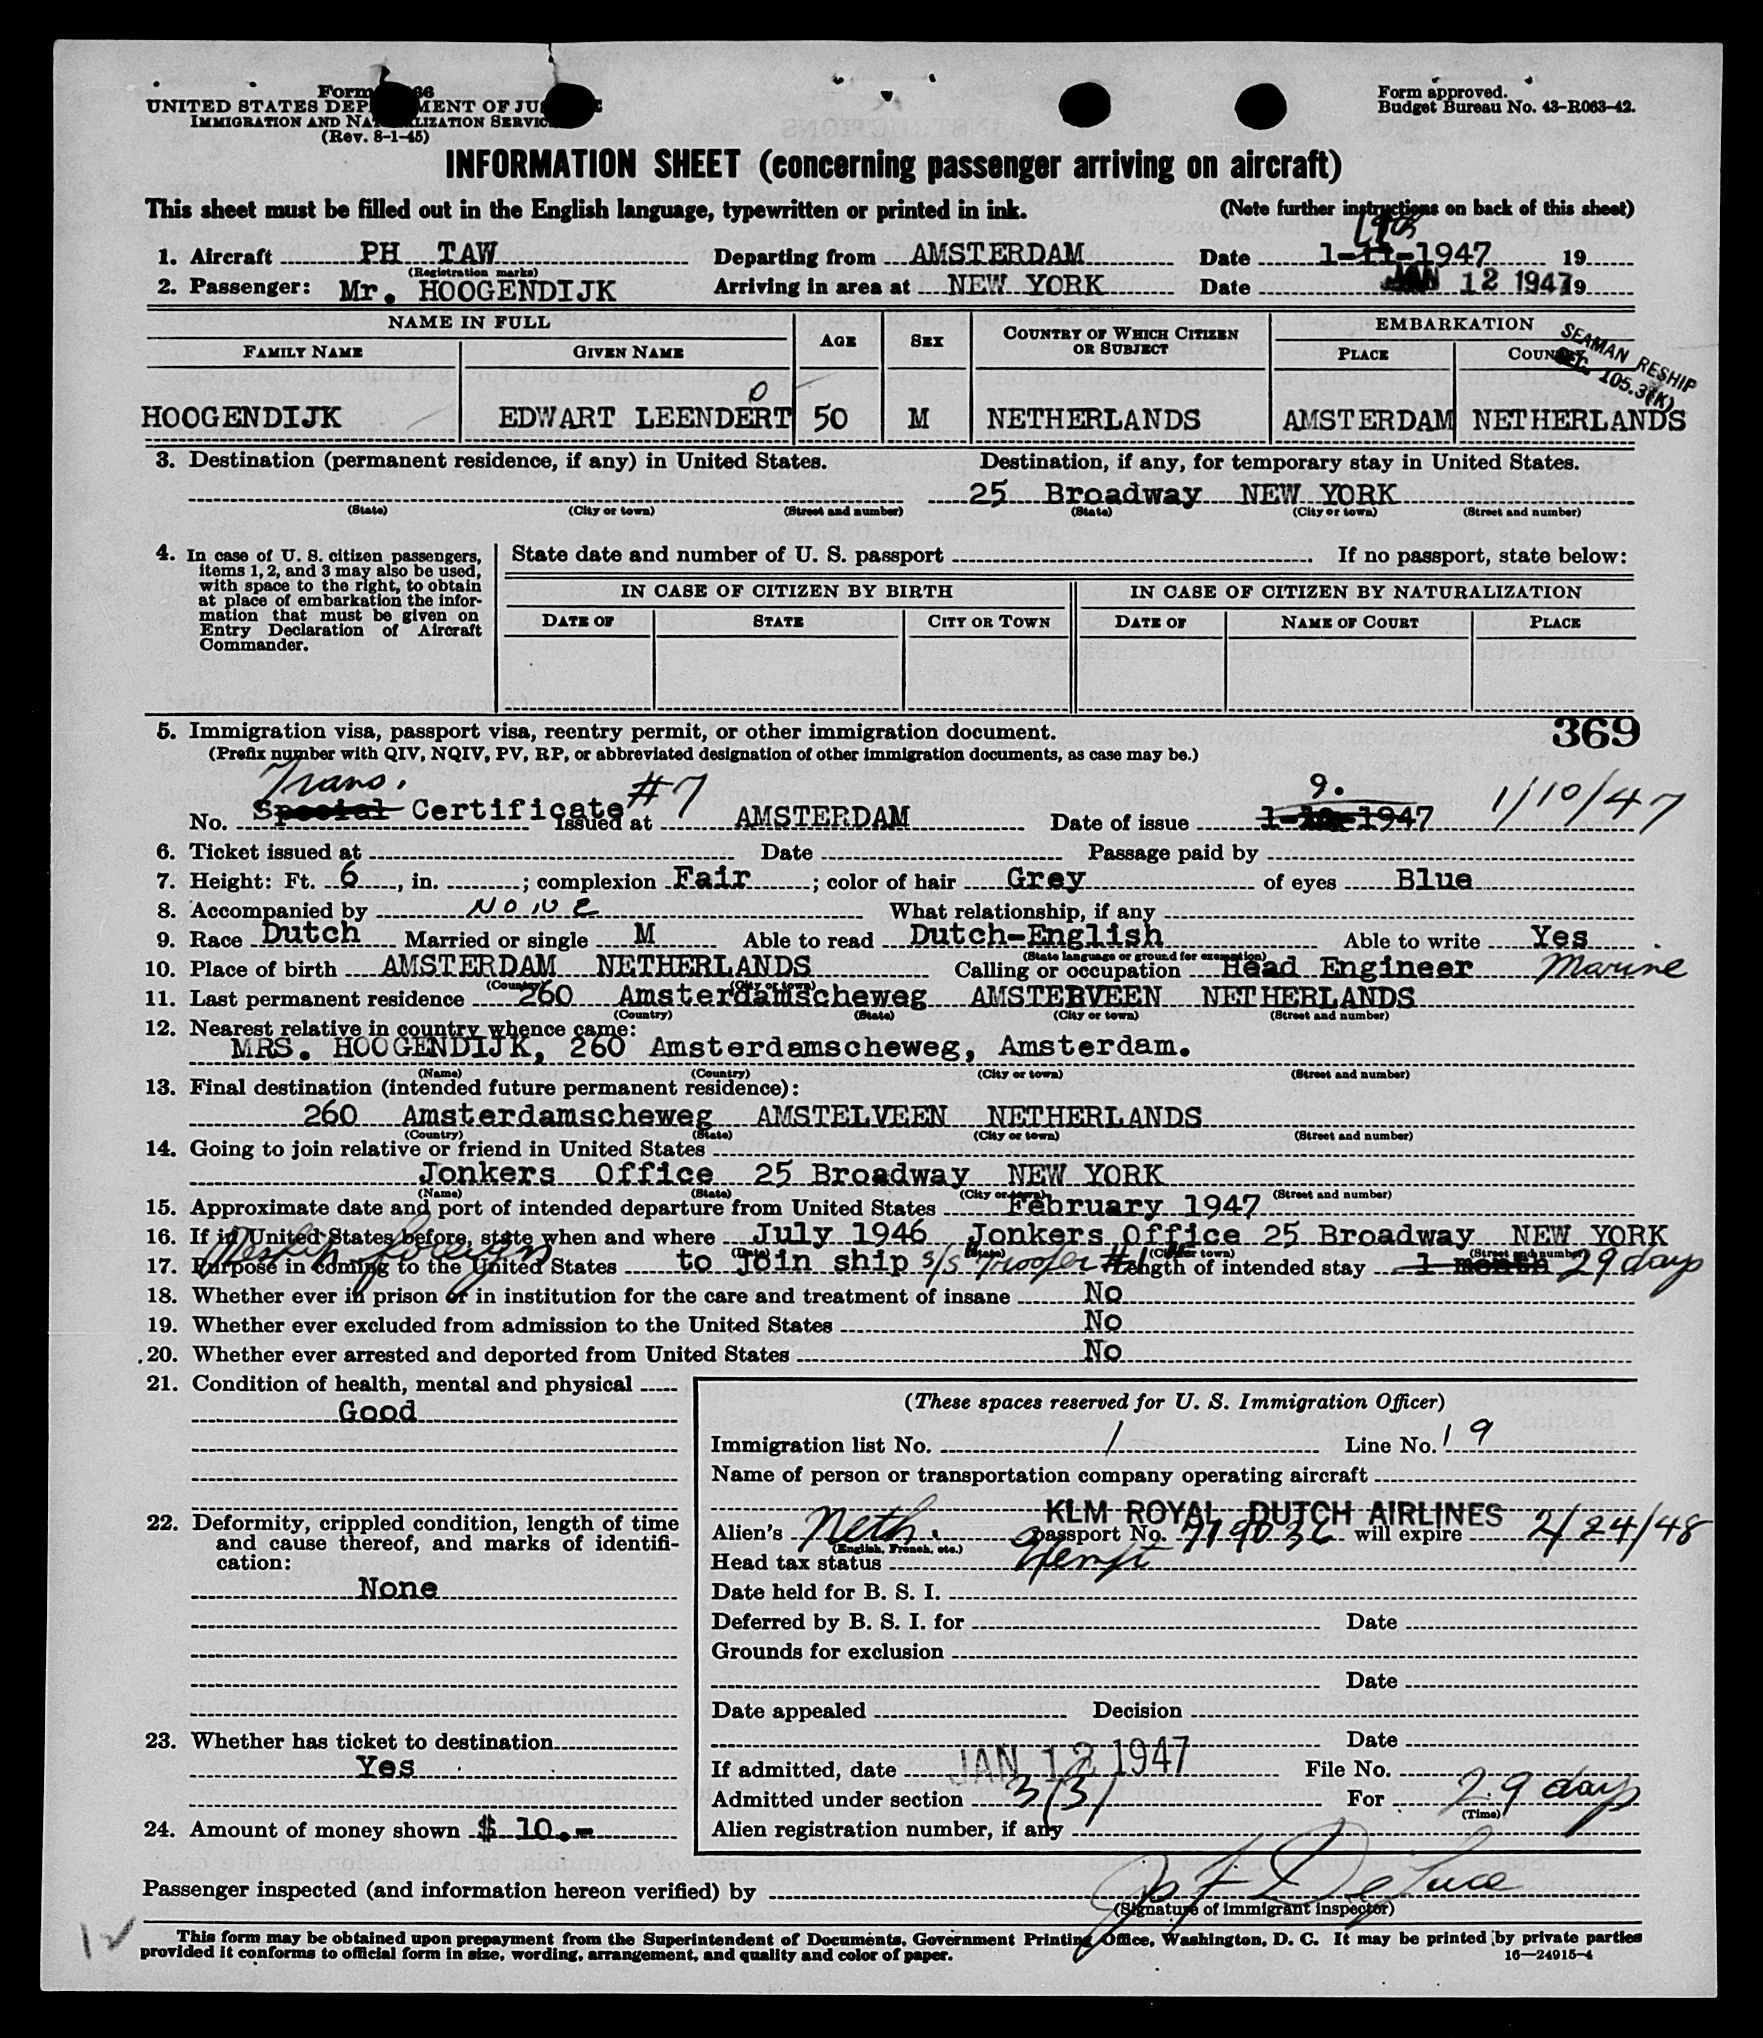 UNITED STATES DEPARTMENT OF JUSTICE
IMMIGRATION AND NATURALIZATION SERVICE
(Rev. 8-1-45)
Form approved.
Budget Bureau No. 43-R063-42.
INFORMATION SHEET (concerning passenger arriving on aircraft)
This sheet must be filled out in the English language, typewritten or printed in ink. (Note further instructions on back of this sheet)
1. Aircraft PH TAW Departing from AMSTERDAM Date 1-11-1947 19
(Registration marks)
2. Passenger: Mr. HOOGENDIJK Arriving in area at NEW YORK Date JAN 12 1947 19
NAME IN FULL AGE SEX COUNTRY OF WHICH CITIZEN OR SUBJECT EMBARKATION
FAMILY NAME GIVEN NAME PLACE COUNTRY
SEAMAN RESHIP
SEC. 105.3(K)
0
HOOGENDIJK EDWART LEENDERT 50 M NETHERLANDS AMSTERDAM NETHERLANDS
3. Destination (permanent residence, if any) in United States. Destination, if any, for temporary stay in United States.
25 Broadway NEW YORK
(State) (City or town) (Street and number) (State) (City or town) (Street and number)
4. In case of U. S. citizen passengers, items 1, 2, and 3 may also be used, with space to the right, to obtain at place of embarkation the information that must be given on Entry Declaration of Aircraft Commander.
State date and number of U. S. passport If no passport, state below:
IN CASE OF CITIZEN BY BIRTH IN CASE OF CITIZEN BY NATURALIZATION
DATE OF STATE CITY OR TOWN DATE OF NAME OF COURT PLACE
5. Immigration visa, passport visa, reentry permit, or other immigration document. 369
(Prefix number with QIV, NQIV, PV, RP, or abbreviated designation of other immigration documents, as case may be.)
Trans. #7 9. 1/10/47
No. Special Certificate Issued at AMSTERDAM Date of issue 1-10-1947
6. Ticket issued at Date Passage paid by
7. Height: Ft. 6, in. ; complexion Fair ; color of hair Grey of eyes Blue
8. Accompanied by NONE What relationship, if any
9. Race Dutch Married or single M Able to read Dutch-English Able to write Yes
(State language or ground for exemption)
10. Place of birth AMSTERDAM NETHERLANDS Calling or occupation Head Engineer Marine
(Country) (City or town)
11. Last permanent residence 260 Amsterdamscheweg AMSTERVEEN NETHERLANDS
(Country) (State) (City or town) (Street and number)
12. Nearest relative in country whence came:
MRS. HOOGENDIJK, 260 Amsterdamscheweg, Amsterdam.
(Name) (Country) (City or town) (Street and number)
13. Final destination (intended future permanent residence):
260 Amsterdamscheweg AMSTELVEEN NETHERLANDS
(Country) (State) (City or town) (Street and number)
14. Going to join relative or friend in United States
Jonkers Office 25 Broadway NEW YORK
(Name) (State) (City or town) (Street and number)
15. Approximate date and port of intended departure from United States February 1947
16. If in United States before, state when and where July 1946 Jonkers Office 25 Broadway NEW YORK
(Date) (State) (City or town) (Street and number)
Reship foreign
17. Purpose in coming to the United States to join ship s/s Trooper #1 Length of intended stay 1 month 29 days
18. Whether ever in prison or in institution for the care and treatment of insane No
19. Whether ever excluded from admission to the United States No
20. Whether ever arrested and deported from United States No
21. Condition of health, mental and physical
Good
22. Deformity, crippled condition, length of time and cause thereof, and marks of identification:
None
23. Whether has ticket to destination
Yes
24. Amount of money shown $ 10.-
(These spaces reserved for U. S. Immigration Officer)
Immigration list No. 1 Line No. 19
Name of person or transportation company operating aircraft
KLM ROYAL DUTCH AIRLINES
Alien's Neth. passport No. 779036 will expire 2/24/48
(English, French, etc.)
Head tax status Exempt
Date held for B. S. I.
Deferred by B. S. I. for Date
Grounds for exclusion
Date
Date appealed Decision
Date
If admitted, date JAN 12 1947 File No.
Admitted under section 3(3) For 29 days
(Time)
Alien registration number, if any
Passenger inspected (and information hereon verified) by
(Signature of immigrant inspector)
This form may be obtained upon prepayment from the Superintendent of Documents, Government Printing Office, Washington, D. C. It may be printed by private parties
provided it conforms to official form in size, wording, arrangement, and quality and color of paper. 16—24915-4